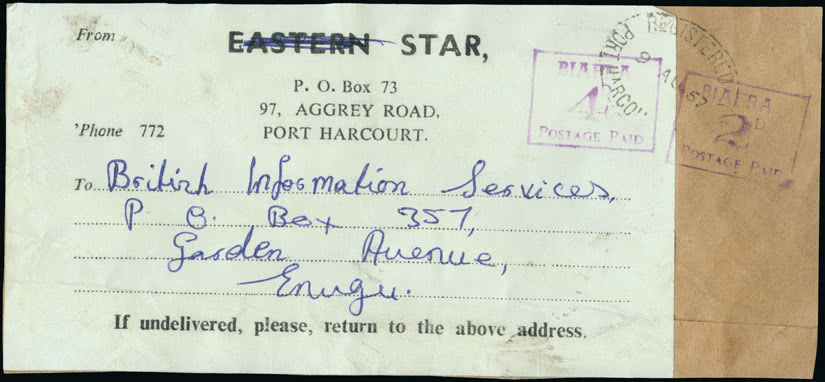 From EASTERN STAR,
P. O. Box 73
97, AGGREY ROAD,
'Phone 772 PORT HARCOURT.
To British Information Services,
P O. Box 357,
Garden Avenue,
Enugu.
If undelivered, please, return to the above address.
BIAFRA
4D
POSTAGE PAID
REGISTERED
PORT HARCOU
9 AU 67
BIAFRA
2D
POSTAGE PAID